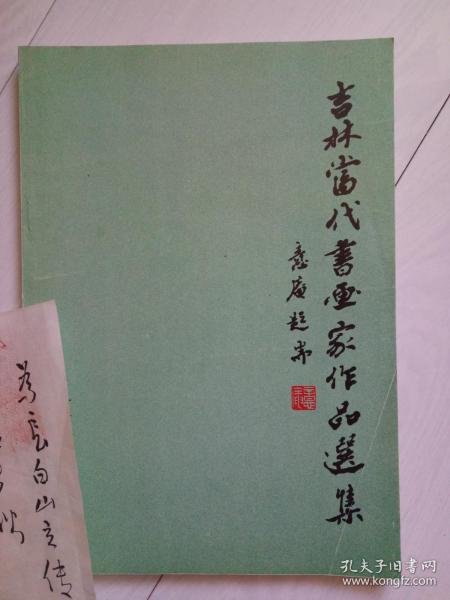 吉林當代書画家作品選集
意庵题耑
为长白山立传
孔夫子旧书网
www.kongfz.com